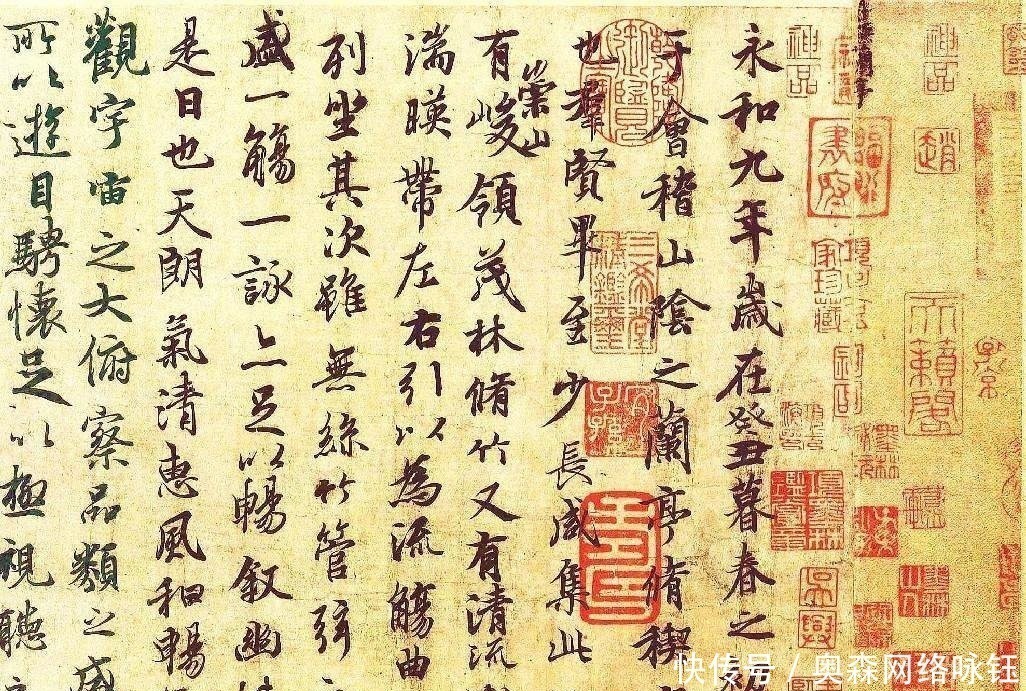 神品
趙
天籟閣
子京
神品
書府
家珍藏
吳興
永和九年歲在癸丑暮春之
于會稽山陰之蘭亭脩稧
也羣賢畢至少長咸集此
有崇山峻領茂林脩竹又有清流
湍暎帶左右引以為流觴曲
列坐其次雖無絲竹管弦
盛一觴一詠亦足以暢敘幽
是日也天朗氣清惠風和暢
觀宇宙之大俯察品類之盛
所以遊目騁懷足以極視聽
快传号 / 奥森网络咏钰